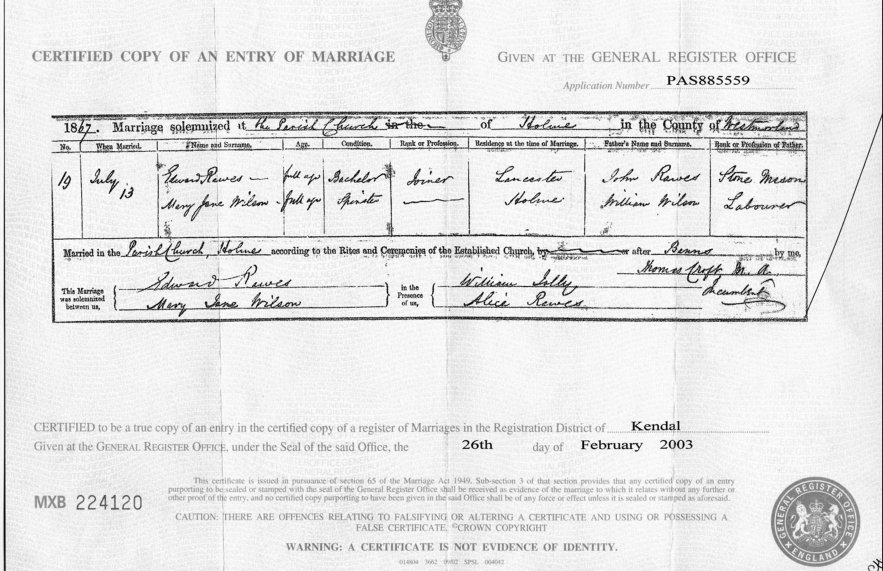 CERTIFIED COPY OF AN ENTRY OF MARRIAGE
GIVEN AT THE GENERAL REGISTER OFFICE
Application Number PAS885559
1867. Marriage solemnized at the Parish Church in the of Holme in the County of Westmorland
No. When Married. Name and Surname. Age. Condition. Rank or Profession. Residence at the time of Marriage. Father's Name and Surname. Rank or Profession of Father.
19 July 13 Edward Rawes full age Bachelor Joiner Lancaster John Rawes Stone Mason
Mary Jane Wilson full age Spinster Holme William Wilson Labourer
Married in the Parish Church, Holme according to the Rites and Ceremonies of the Established Church, by or after Banns by me,
Thomas Croft M. A.
Incumbent
This Marriage was solemnized between us,
Edward Rawes
Mary Jane Wilson
in the Presence of us,
William Jolly
Alice Rawes
CERTIFIED to be a true copy of an entry in the certified copy of a register of Marriages in the Registration District of Kendal
Given at the GENERAL REGISTER OFFICE, under the Seal of the said Office, the 26th day of February 2003
This certificate is issued in pursuance of section 65 of the Marriage Act 1949. Sub-section 3 of that section provides that any certified copy of an entry
purporting to be sealed or stamped with the seal of the General Register Office shall be received as evidence of the marriage to which it relates without any further or
other proof of the entry, and no certified copy purporting to have been given in the said Office shall be of any force or effect unless it is sealed or stamped as aforesaid.
MXB 224120
CAUTION: THERE ARE OFFENCES RELATING TO FALSIFYING OR ALTERING A CERTIFICATE AND USING OR POSSESSING A
FALSE CERTIFICATE. ©CROWN COPYRIGHT
WARNING: A CERTIFICATE IS NOT EVIDENCE OF IDENTITY.
014804 3662 09/02 SPSL 004042
GENERAL REGISTER OFFICE
ENGLAND